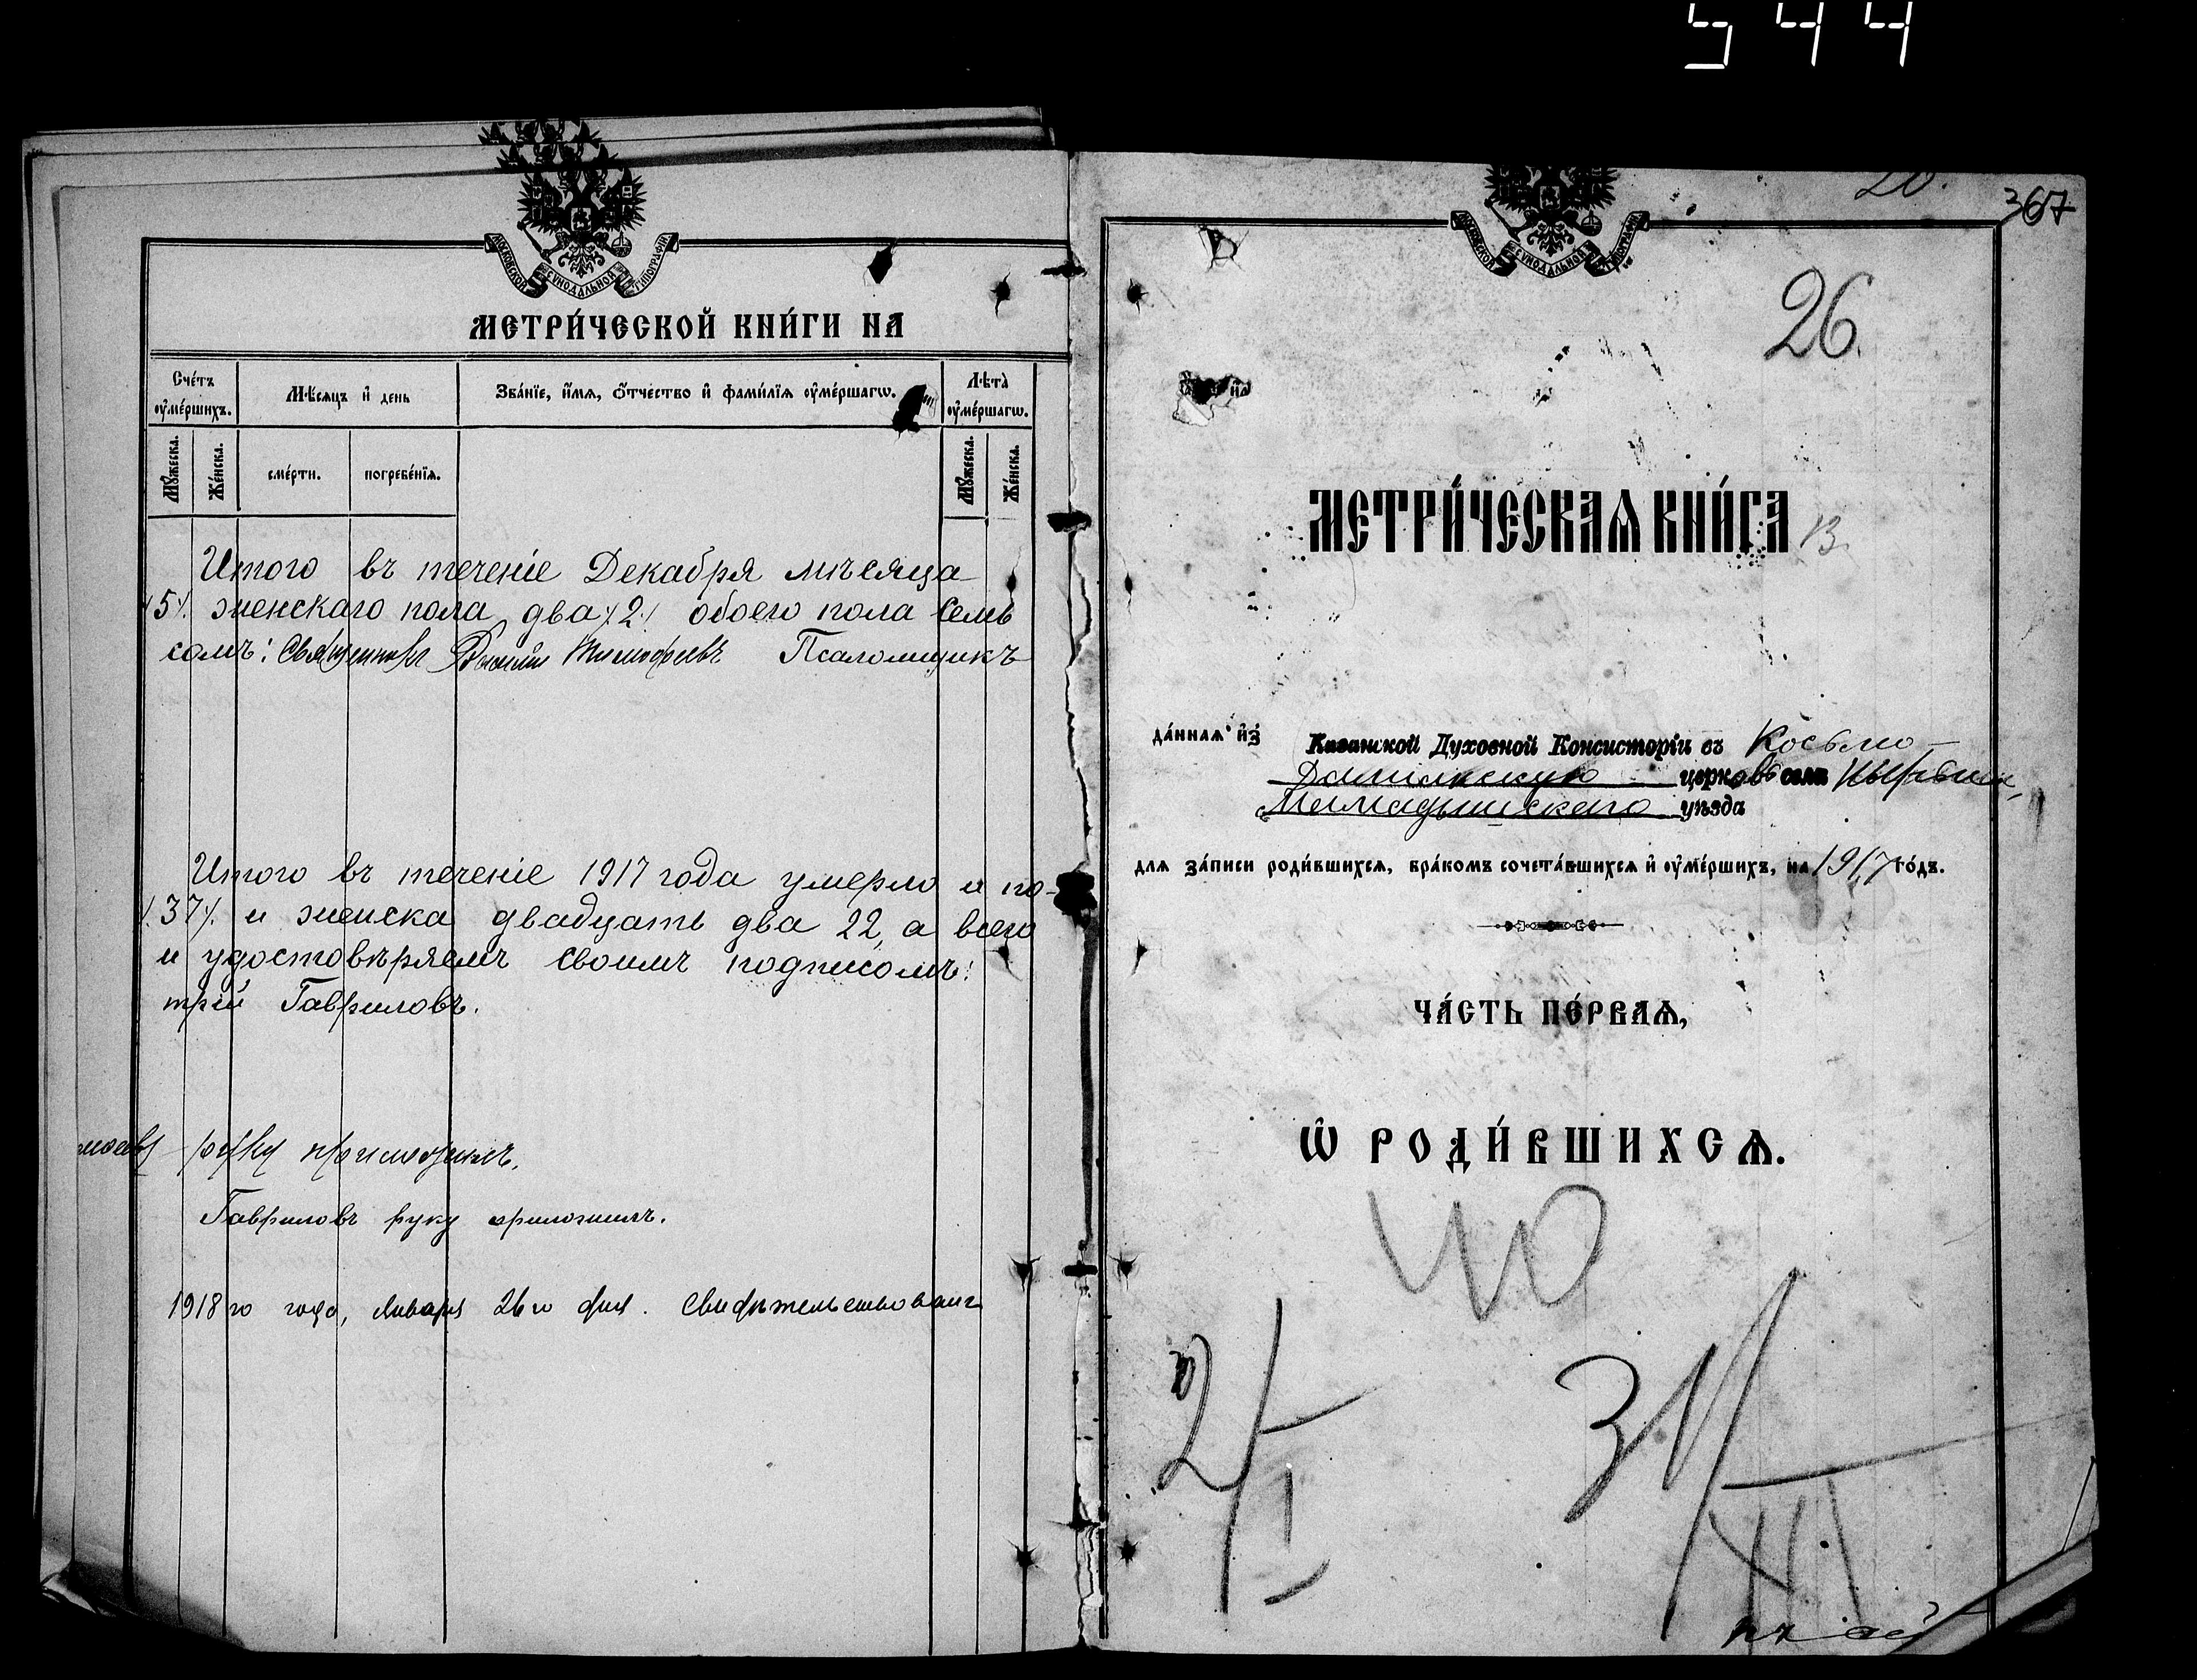 544
МОСКОВСКОЙ СѴНОДАЛЬНОЙ ТІПОГРАФІИ
МЕТРИ́ЧЕСКОЙ КНИ́ГИ НА
Сче́тъ ᲂу҆ме́ршихъ.
Мѣ́сяцъ и҆ день
Зва́нїе, и҆́мѧ, ѻ҆́тчество и҆ фами́лїѧ ᲂу҆ме́ршагѡ.
Лѣ́та ᲂу҆ме́ршагѡ.
Мꙋ́жеска.
Же́нска.
сме́рти.
погребе́нїѧ.
Мꙋ́жеска.
Же́нска.
Итого въ теченіе Декабря мѣсяца
/5/. женскаго пола два /2/ обоего пола семь
сомъ: Священникъ Тимофеевъ Псаломщикъ
Итого въ теченіе 1917 года умерло и по-
/37/. и женска двадцать два 22, а всего
и удостовѣряемъ своимъ подписомъ:
трій Гавриловъ.
руку приложилъ.
Гавриловъ руку приложилъ.
1918 го года, Января 26 го дня. Свидѣтельствовалъ
20.
367
МОСКОВСКОЙ СѴНОДАЛЬНОЙ ТІПОГРАФІИ
26.
МЕТРИ́ЧЕСКАѦ КНИ́ГА
13.
да́ннаѧ и҆з̾ Казанской Духовной Консисторіи въ Косьмо-
Даміанскую церковь села
Мамадышскаго уѣзда
для за́писи роди́вшихсѧ, бра́комъ сочета́вшихсѧ и҆ ᲂу҆ме́ршихъ, на 1917 го́дъ.
ЧА́СТЬ ПЕ́РВАѦ,
Ѡ҆ РОДИ́ВШИХСѦ.
40
2/I
31/XII